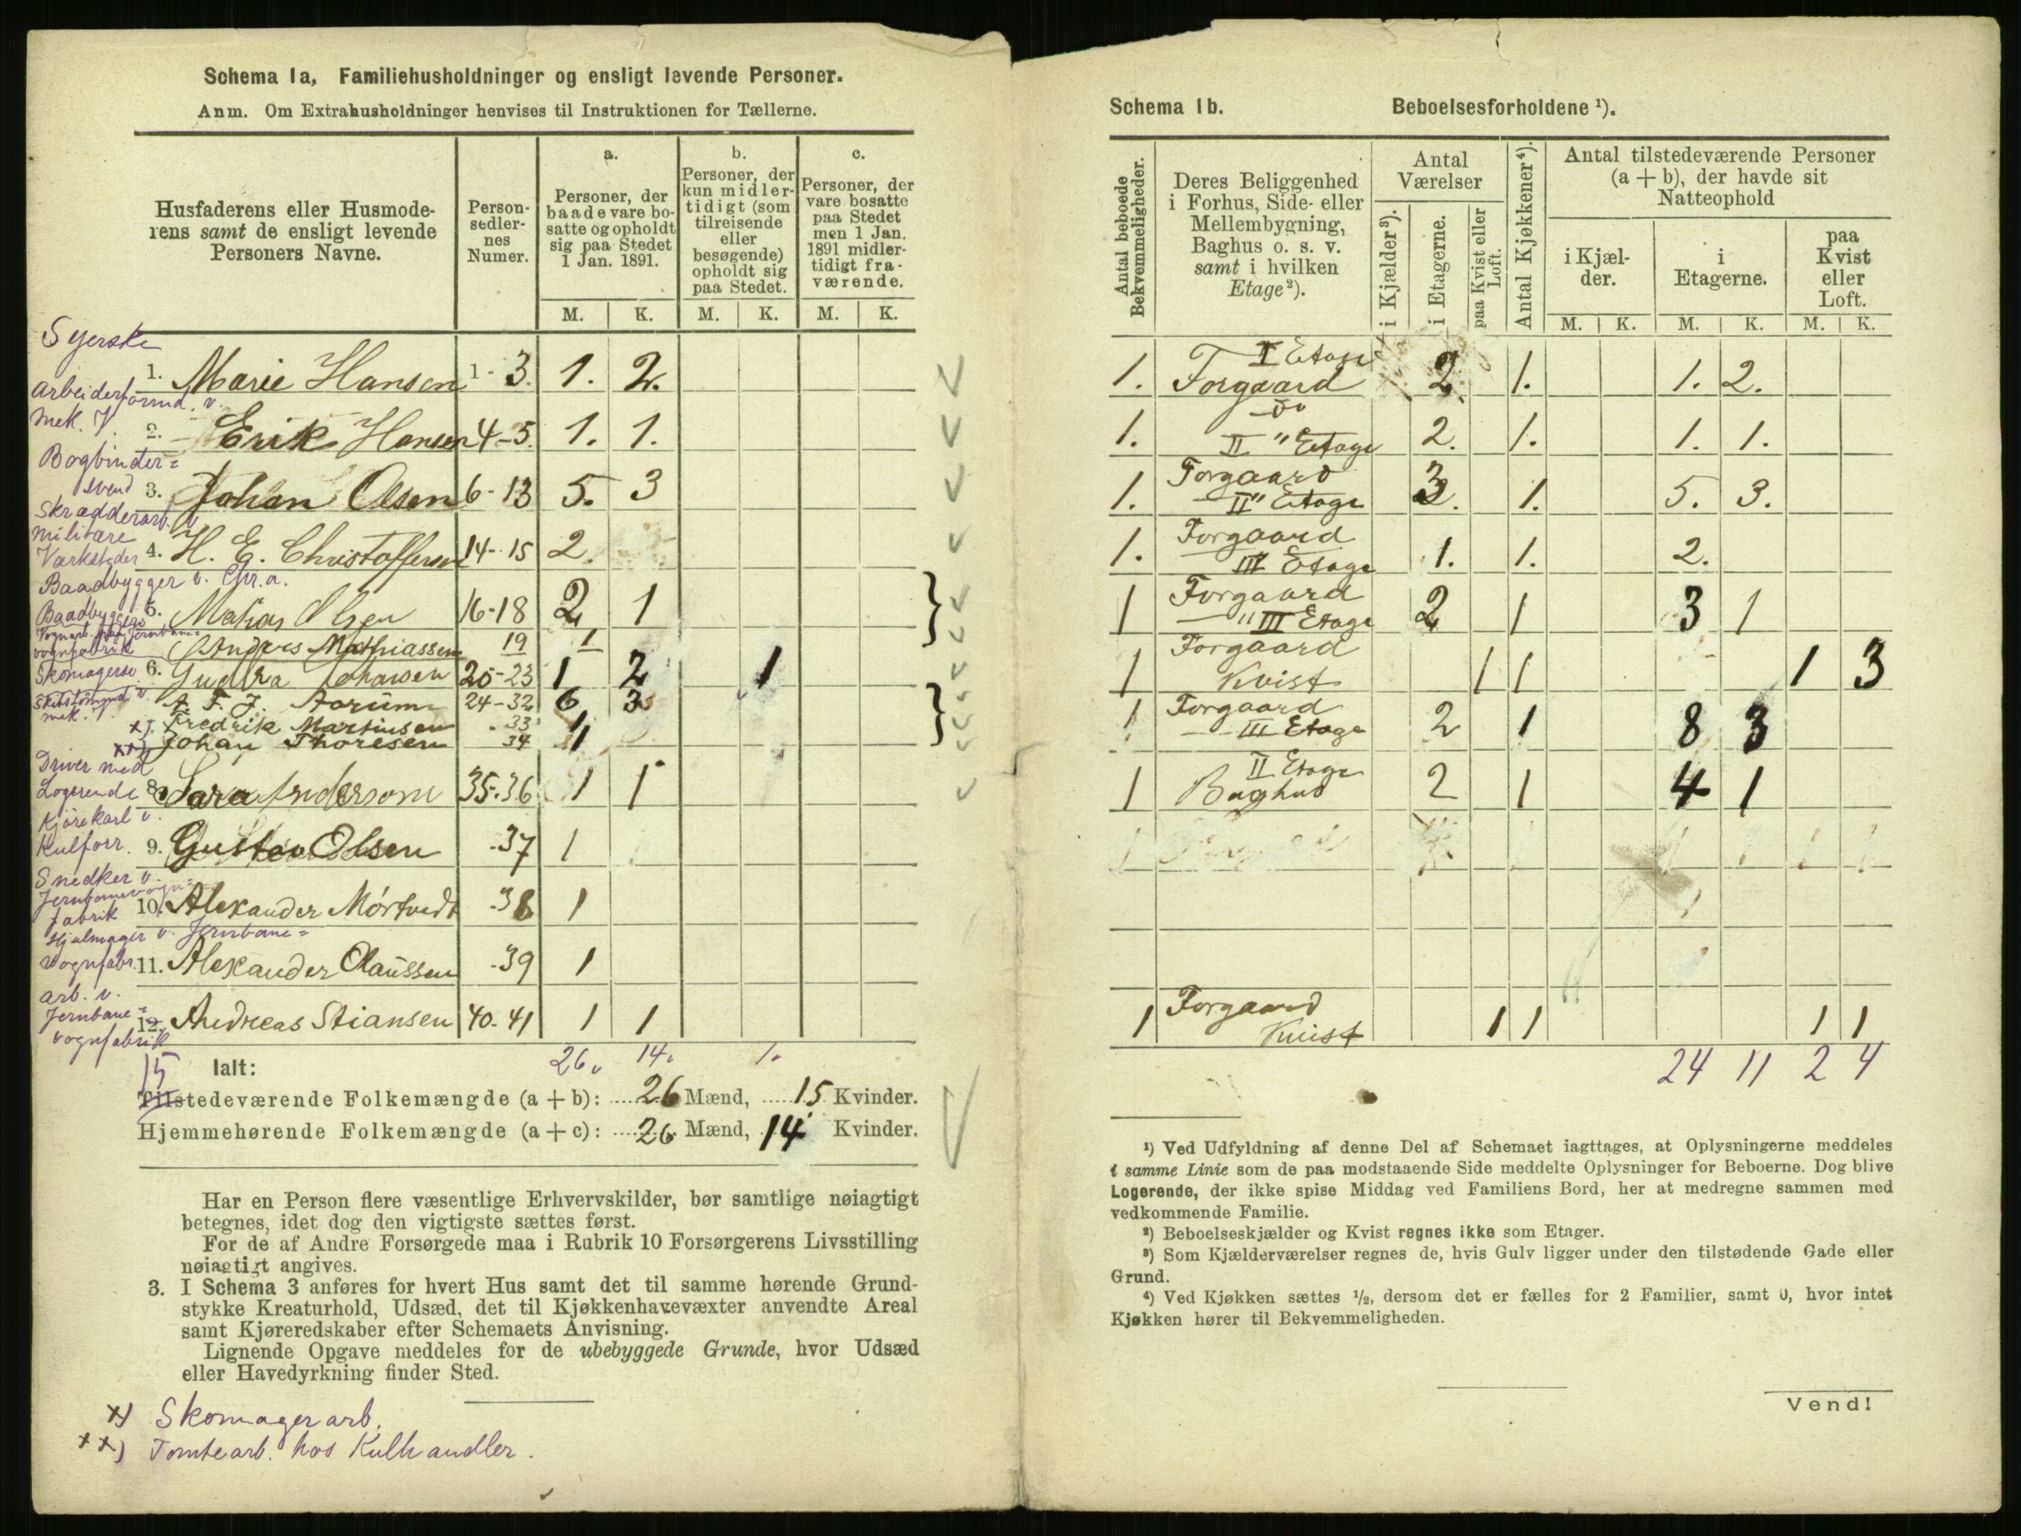 Schema 1a, Familiehusholdninger og ensligt levende Personer.
Anm. Om Extrahusholdninger henvises til Instruktionen for Tællerne.
Husfaderens eller Husmode-
rens samt de ensligt levende
Personers Navne.
Person-
sedler-
nes
Numer.
a.
Personer, der
baade vare bo-
satte og opholdt
sig paa Stedet
1 Jan. 1891.
b.
Personer, der
kun midler-
tidigt (som
tilreisende
eller
besøgende)
opholdt sig
paa Stedet.
c.
Personer, der
vare bosatte
paa Stedet
men 1 Jan.
1891 midler-
tidigt fra-
værende.
M. K. M. K. M. K.
Syerske
1. Marie Hansen 1-3. 1. 2.
Arbeiderformd. v.
mek. V.
2. Erik Hansen 4-5. 1. 1.
Bogbinder=
svend
3. Johan Olsen 6-13 5. 3
Skrædderarb. v.
militære
Værksteder
4. H. E. Christoffersen 14-15 2.
Baadbygger v. Chr.a.
Baadbyggeri
5. Mathias Olsen 16-18 2 1
Vognarb. paa Jernbane=
vognfabrik
Anders Mathiassen 19 1
Skomagersv.
6. Gudla Johansen 20-23 1 2 1
mek. V.
A. F. J. Aarum 24-32 6 3
x) Fredrik Martinsen 33 1
xx) Johan Thoresen 34 1
Driver med
Logerende
8. Sara Andersom 35-36 1 1
Kjørekarl v.
Kulforr.
9. Gustav Olsen -37 1
Snedker v.
Jernbanevogn=
fabrik
10. Alexander Mørtvedt -38 1
Hjulmager v. Jernbane=
vognfabr.
11. Alexander Claussen -39 1
arb. v.
Jernbane=
vognfabrik
12. Andreas Stiansen 40-41 1 1
15 Ialt: 26. 14. 1.
Tilstedeværende Folkemængde (a + b): 26 Mænd, 15 Kvinder.
Hjemmehørende Folkemængde (a + c): 26 Mænd, 14 Kvinder.
Har en Person flere væsentlige Erhvervskilder, bør samtlige nøiagtigt
betegnes, idet dog den vigtigste sættes først.
For de af Andre Forsørgede maa i Rubrik 10 Forsørgerens Livsstilling
nøiagtigt angives.
3. I Schema 3 anføres for hvert Hus samt det til samme hørende Grund-
stykke Kreaturhold, Udsæd, det til Kjøkkenhavevæxter anvendte Areal
samt Kjøreredskaber efter Schemaets Anvisning.
Lignende Opgave meddeles for de ubebyggede Grunde, hvor Udsæd
eller Havedyrkning finder Sted.
x) Skomagerarb.
xx) Tomtearb. hos Kulhandler.
Schema 1b. Beboelsesforholdene ¹).
Antal beboede
Bekvemmeligheder.
Deres Beliggenhed
i Forhus, Side- eller
Mellembygning,
Baghus o. s. v.
samt i hvilken
Etage²).
Antal
Værelser
i Kjælder³).
i Etagerne.
paa Kvist eller
Loft.
Antal Kjøkkener⁴).
Antal tilstedeværende Personer
(a + b), der havde sit
Natteophold
i Kjæl-
der.
i
Etagerne.
paa
Kvist
eller
Loft.
M. K. M. K. M. K.
I Etage
1. Forgaard 2 1. 1. 2.
do
1. II " Etage 2. 1. 1. 1.
Forgaard
1. II" Etage 3 1. 5. 3.
Forgaard
1. III Etage 1. 1. 2.
Forgaard
1 " III Etage 2 1 3 1
Forgaard
1 Kvist 1 1 1 3
Forgaard
1 III Etage 2 1 8 3
II Etage
1 Baghus 2 1 4 1
Forgaard
1 Kvist 1 1 1 1
24 11 2 4
¹) Ved Udfyldning af denne Del af Schemaet iagttages, at Oplysningerne meddeles
i samme Linie som de paa modstaaende Side meddelte Oplysninger for Beboerne. Dog blive
Logerende, der ikke spise Middag ved Familiens Bord, her at medregne sammen med
vedkommende Familie.
²) Beboelseskjælder og Kvist regnes ikke som Etager.
³) Som Kjælderværelser regnes de, hvis Gulv ligger under den tilstødende Gade eller
Grund.
⁴) Ved Kjøkken sættes ½, dersom det er fælles for 2 Familier, samt 0, hvor intet
Kjøkken hører til Bekvemmeligheden.
Vend!